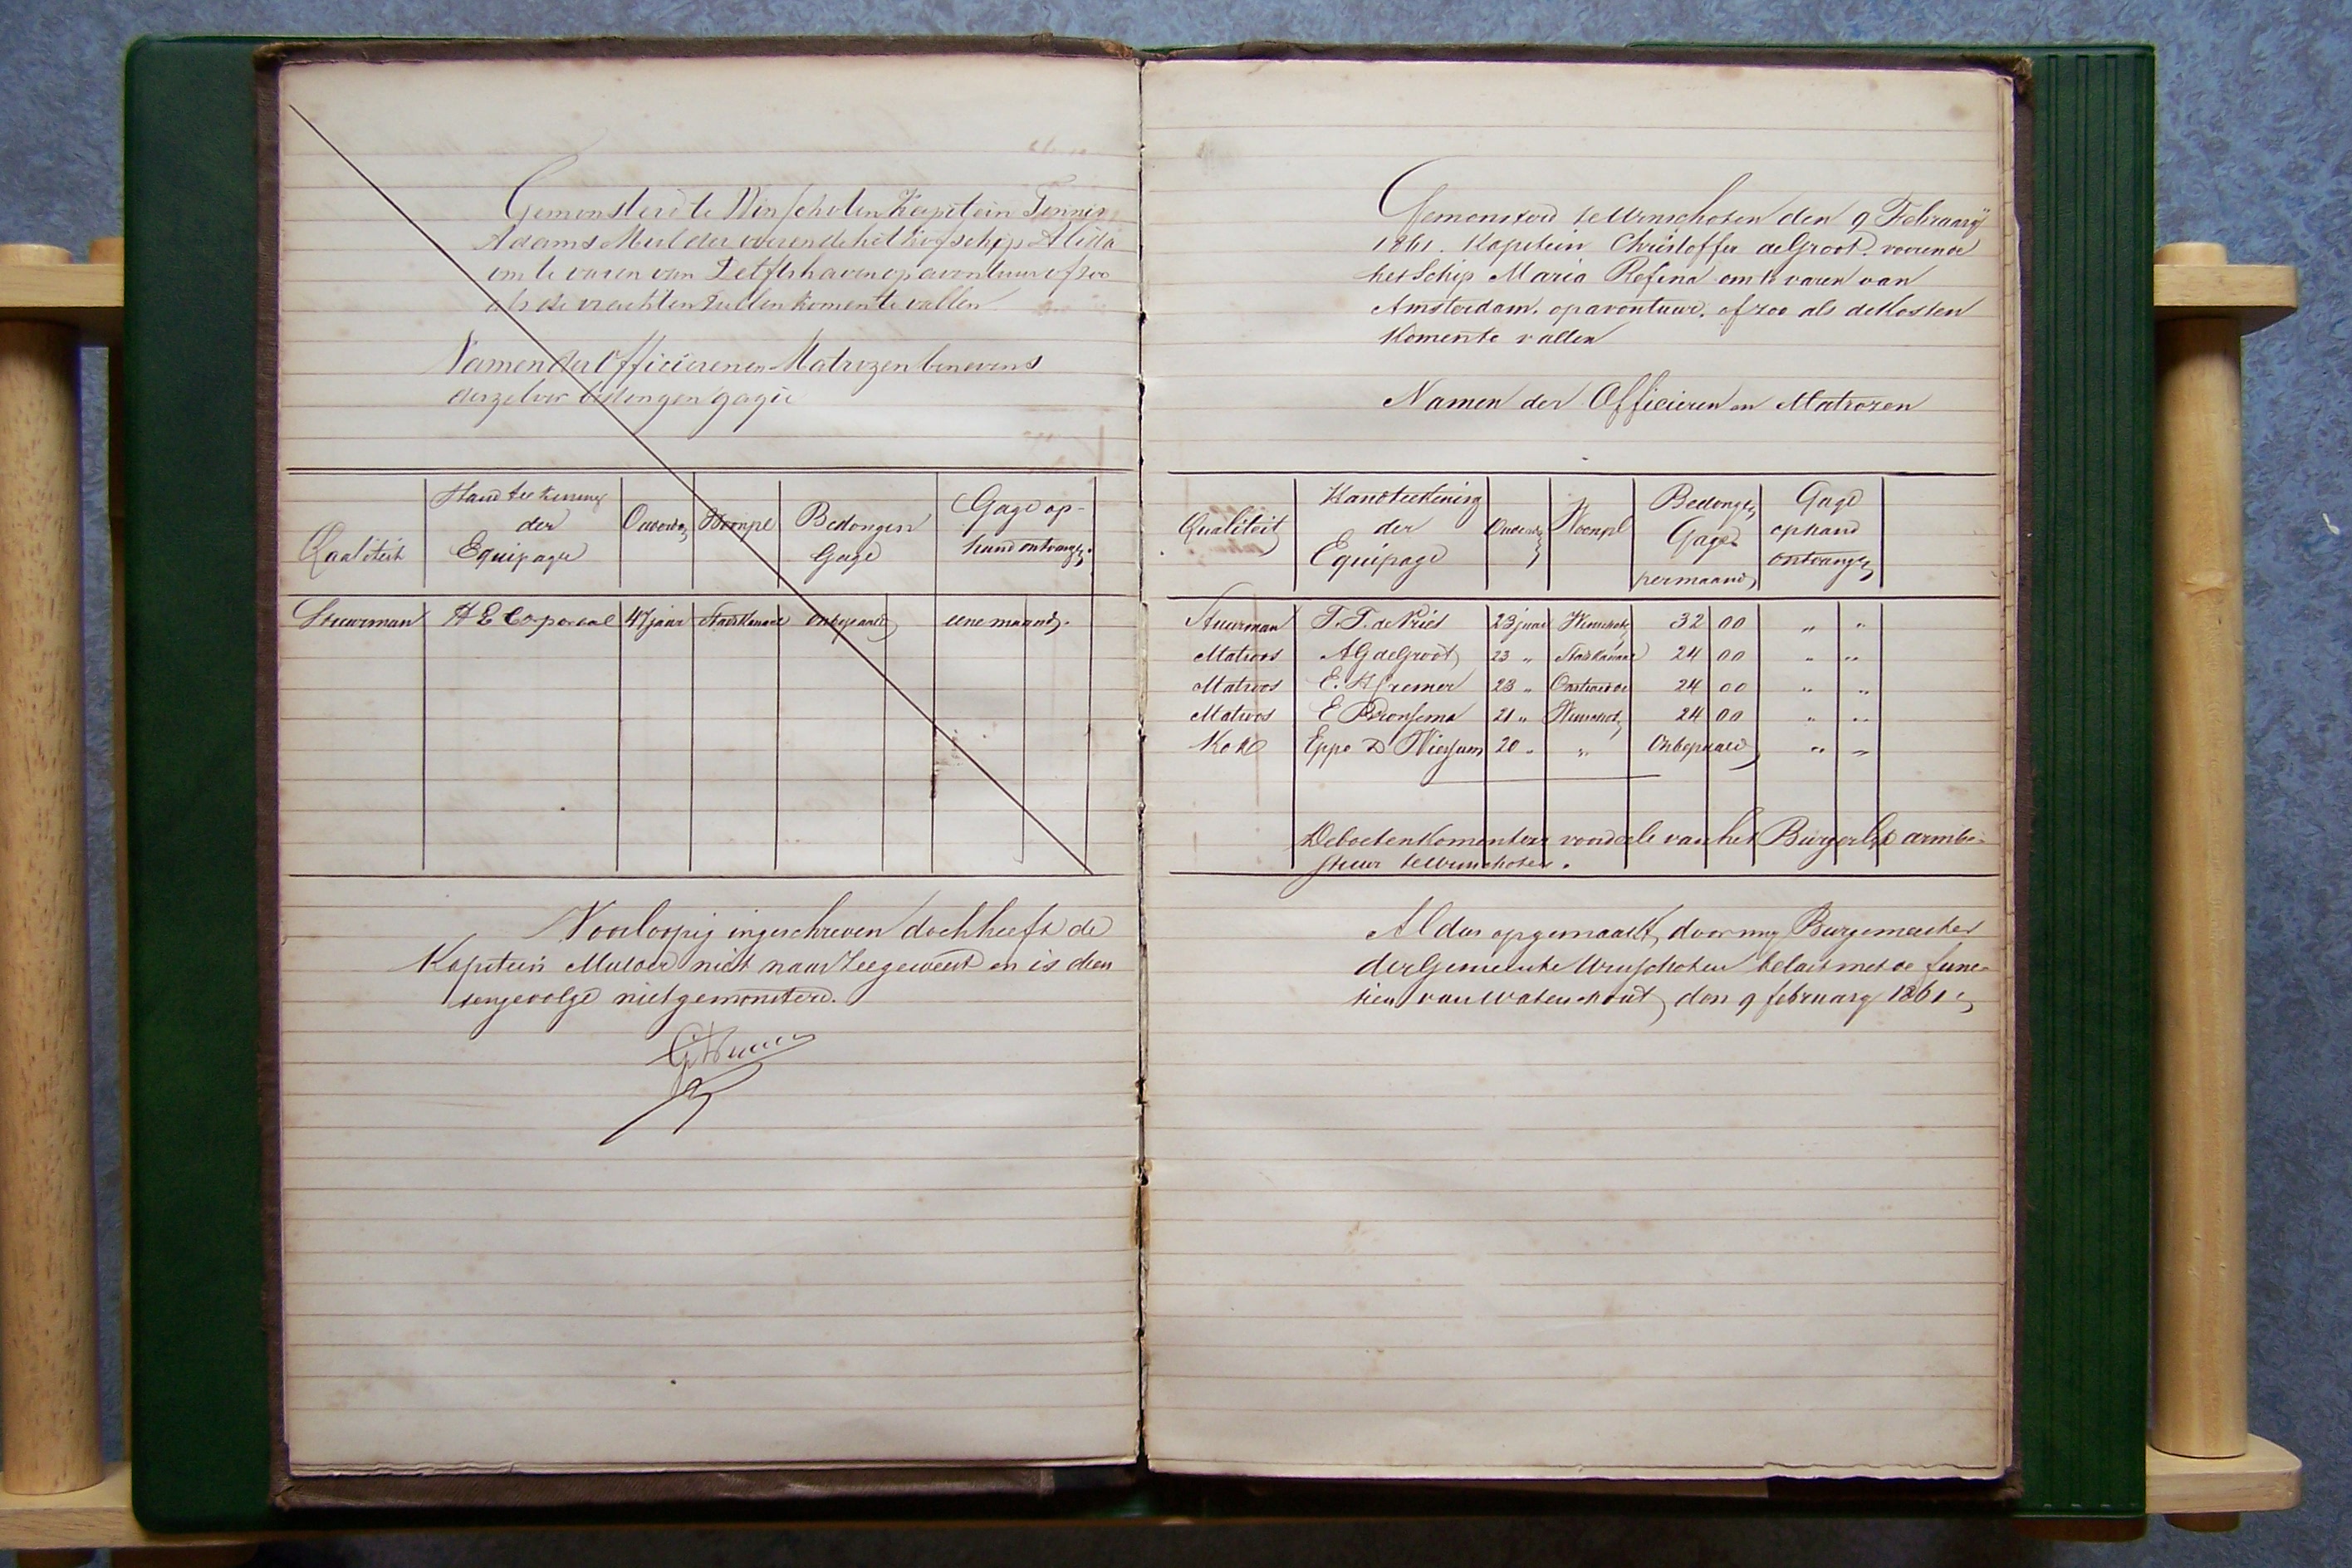 Gemonsterd te Winschoten Kapitein Tonnis
Adams Mulder voerende het kofschip Alida
om te varen van Delfshaven op avontuur of zoo
als de vrachten zullen komen te vallen
Namen der Officieren en Matrozen benevens
derzelver bedongen gagie
Qualiteit
Handteekening der Equipage
Ouderdom
Woonpl
Bedongen Gage
Gage op hand ontvangen
Stuurman H E Corporaal 47 jaar Stadskanaal onbepaald eene maand.
Voorloopig ingeschreven doch heeft de
Kapitein Mulder niet naar Zee geweest en is dien
tengevolge niet gemonsterd.
Gemonsterd te Winschoten den 9 Februarij
1861. Kapitein Christoffer de Groot. voerende
het Schip Maria Rosina om te varen van
Amsterdam. op avontuur. of zoo als de kosten
komen te vallen
Namen der Officieren en Matrozen
Qualiteit
Handteekening der Equipage
Ouderdom
Woonpl
Bedongen Gage per maand
Gage op hand ontvangen
Stuurman T. T. de Vries 23 jaar Winschoten 32 00 " "
Matroos A G de Groot 23 " Stadskanaal 24 00 " "
Matroos E. H Cremer 23 " Onstwedde 24 00 " "
Matroos E Bronsema 21 " Winschoten 24 00 " "
Kok Eppo D Wiersum 20 " " Onbepaald " "
De boeten komen ten voordeele van het Burgerlijk armbe-
stuur te Winschoten.
Aldus opgemaakt, door mij Burgemeester
der Gemeente Winschoten belast met de func-
tien van Waterschout, den 9 februarij 1861.